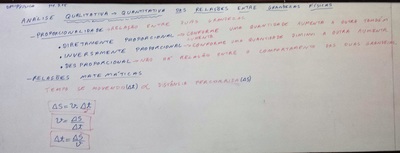 ANÁLISE QUALITATIVA E QUANTITATIVA DAS RELAÇÕES ENTRE GRANDEZAS FÍSICAS
- PROPORCIONALIDADE: RELAÇÃO ENTRE DUAS GRANDEZAS
• DIRETAMENTE PROPORCIONAL → CONFORME UMA QUANTIDADE AUMENTA A OUTRA TAMBÉM AUMENTA
• INVERSAMENTE PROPORCIONAL → CONFORME UMA QUALIDADE DIMINUI A OUTRA AUMENTA
• DESPROPORCIONAL → NÃO HÁ RELAÇÃO ENTRE O COMPORTAMENTO DAS DUAS
- RELAÇÕES MATEMÁTICAS
TEMPO DE MOVIMENTO (Δt) DISTÂNCIA PERCORRIDA (ΔS)
ΔS = v · Δt
v = ΔS / Δt
Δt = ΔS / v